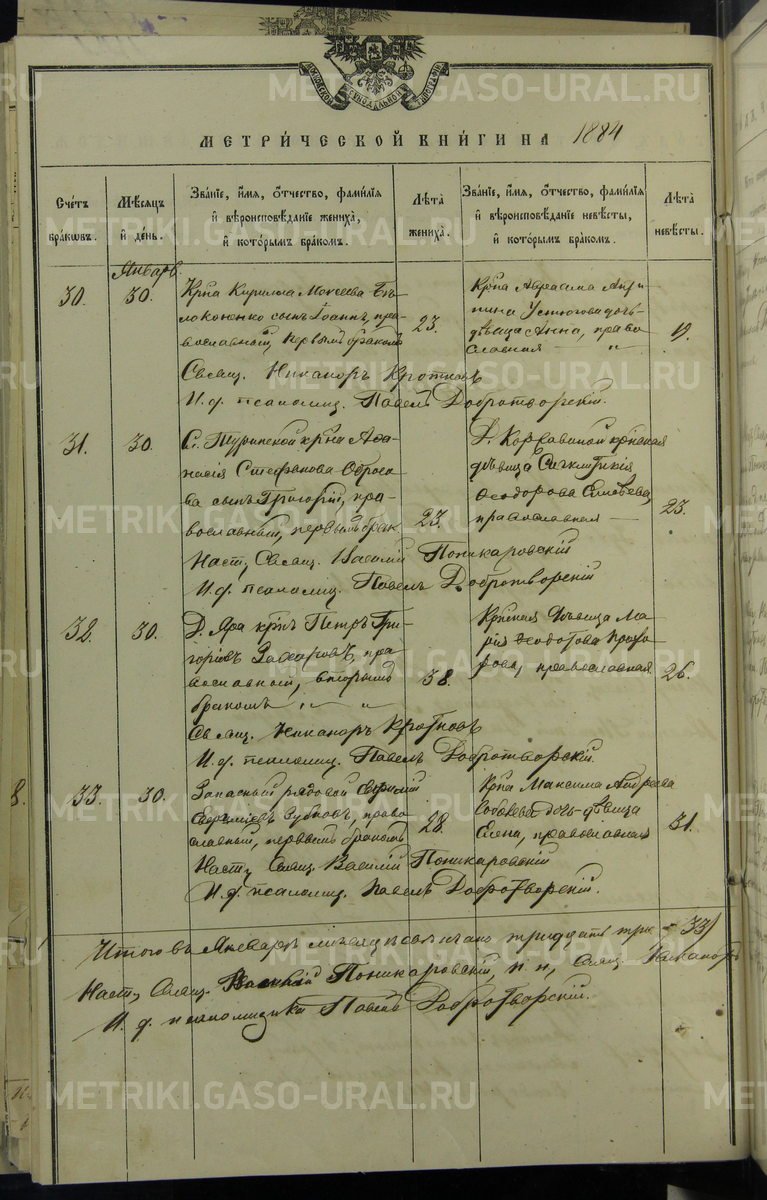 МОСКОВСКОЙ СѴНОДАЛЬНОЙ ТѴПОГРАФІИ
МЕТРИ́ЧЕСКОЙ КНИ́ГИ НА 1884
Сче́тъ бра́ковъ.
Мѣ́сяцъ и҆ день.
Зва́нїе, и҆́мя, ѻ҆́тчество, фами́лїя и҆ вѣроисповѣ́данїе жениха̀, и҆ кото́рымъ бра́комъ.
Лѣта̀ жениха̀.
Зва́нїе, и҆́мя, ѻ҆́тчество, фами́лїя и҆ вѣроисповѣ́данїе невѣ́сты, и҆ кото́рымъ бра́комъ.
Лѣта̀ невѣ́сты.
Январь
30. 30.
Крña Кирилла Моисеева Бѣ-
локоненко сынъ Іоаннъ, пра-
вославный, первымъ бракомъ
23.
Крña
Устюгова дочь
дѣвица Анна, право
славная — „
19.
Свящ. Никаноръ Кротковъ
И. д. псаломщ. Павелъ Добротворскій.
31. 30.
С. Туринской крña Аѳа-
насія Стефанова
ва сынъ Григорій, пра-
вославный, первымъ брак
23.
Д. крñская
дѣвица Сигклитикія
Ѳеодорова
православная —
23.
Наст, Свящ. Василій Поникаровскій
И. д. псаломщ. Павелъ Добротворскій
32. 30.
Д. Яра крñъ Петръ Гри-
горіевъ Захаровъ, пра
вославный, вторымъ
бракомъ „ „
38.
Крñская дѣвица Ма
рія Ѳеодотова Прохо
рова, православная
26.
Свящ. Никаноръ Кротковъ
И. д. псаломщ. Павелъ Добротворскій.
33. 30.
Запасный рядовой
Зубковъ, право
славный, первымъ бракомъ
28.
Крña Максима Андреева
дочь дѣвица
Елена, православная
31.
Наст, Свящ. Василій Поникаровскій
И. д. псаломщ. Павелъ Добротворскій.
Итого въ Январѣ мѣсяцѣ повѣнчано тридцать три – 33)
Наст, Свящ. Василій Поникаровскій, Свящ. Никаноръ
И. д. псаломщика Павелъ Добротворскій.
8.
METRIKI.GASO-URAL.RU